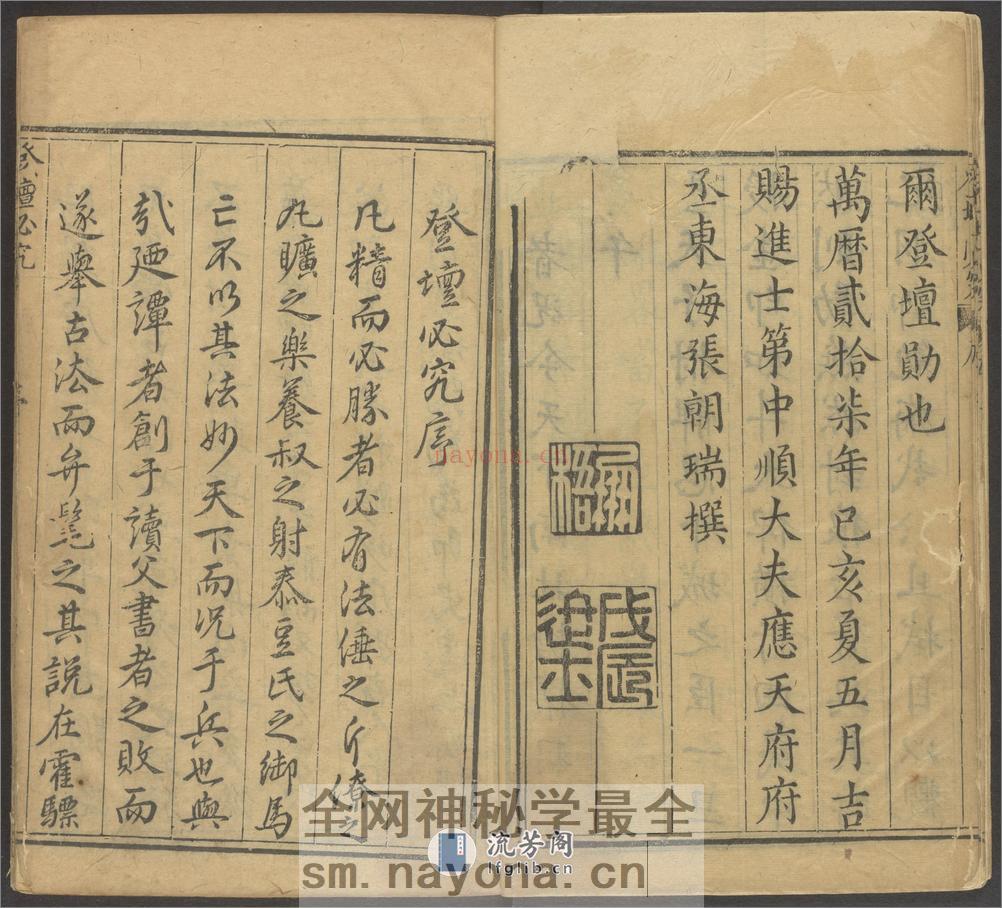 爾登壇勛也
萬曆貳拾柒年己亥夏五月吉
賜進士第中順大夫應天府府
丞東海張朝瑞撰
戊辰進士
登壇必究序
凡精而必勝者必有法倕之斤僚之
丸曠之樂養叔之射泰豆氏之御馬
亡不以其法妙天下而况于兵也與
哉廼譚者創于讀父書者之敗而
遂舉古法而弁髦之其說在霍驃
登壇必究
nayona.cn
全网神秘学最全
流芳阁
lfglib.cn
sm.nayona.cn